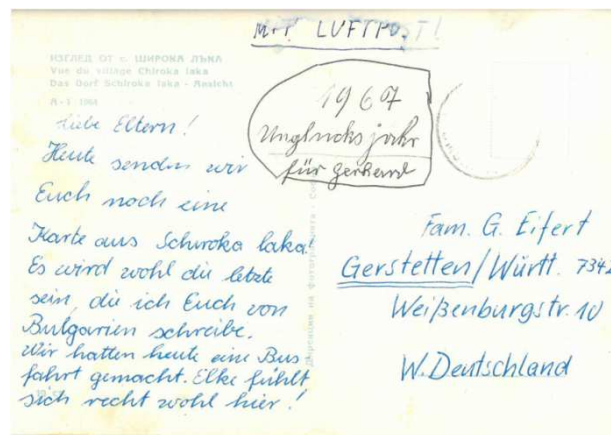 Mit LUFTPOST!
ИЗГЛЕД ОТ с. ШИРОКА ЛЪКА
Vue du village Chiroka laka
Das Dorf Schiroka laka - Ansicht
1967
Unglücksjahr
für Gerhard
Liebe Eltern!
Heute senden wir
Euch noch eine
Karte aus Schiroka laka!
Es wird wohl die letzte
sein, die ich Euch von
Bulgarien schreibe.
Wir hatten heute eine Bus
fahrt gemacht. Elke fühlt
sich recht wohl hier!
Fam. G. Eifert
Gerstetten/Württ. 7342
Weißenburgstr. 10
W. Deutschland